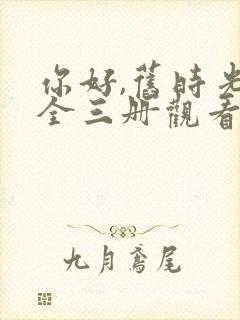 你好,舊時光
全三册觀看
九月鳶尾